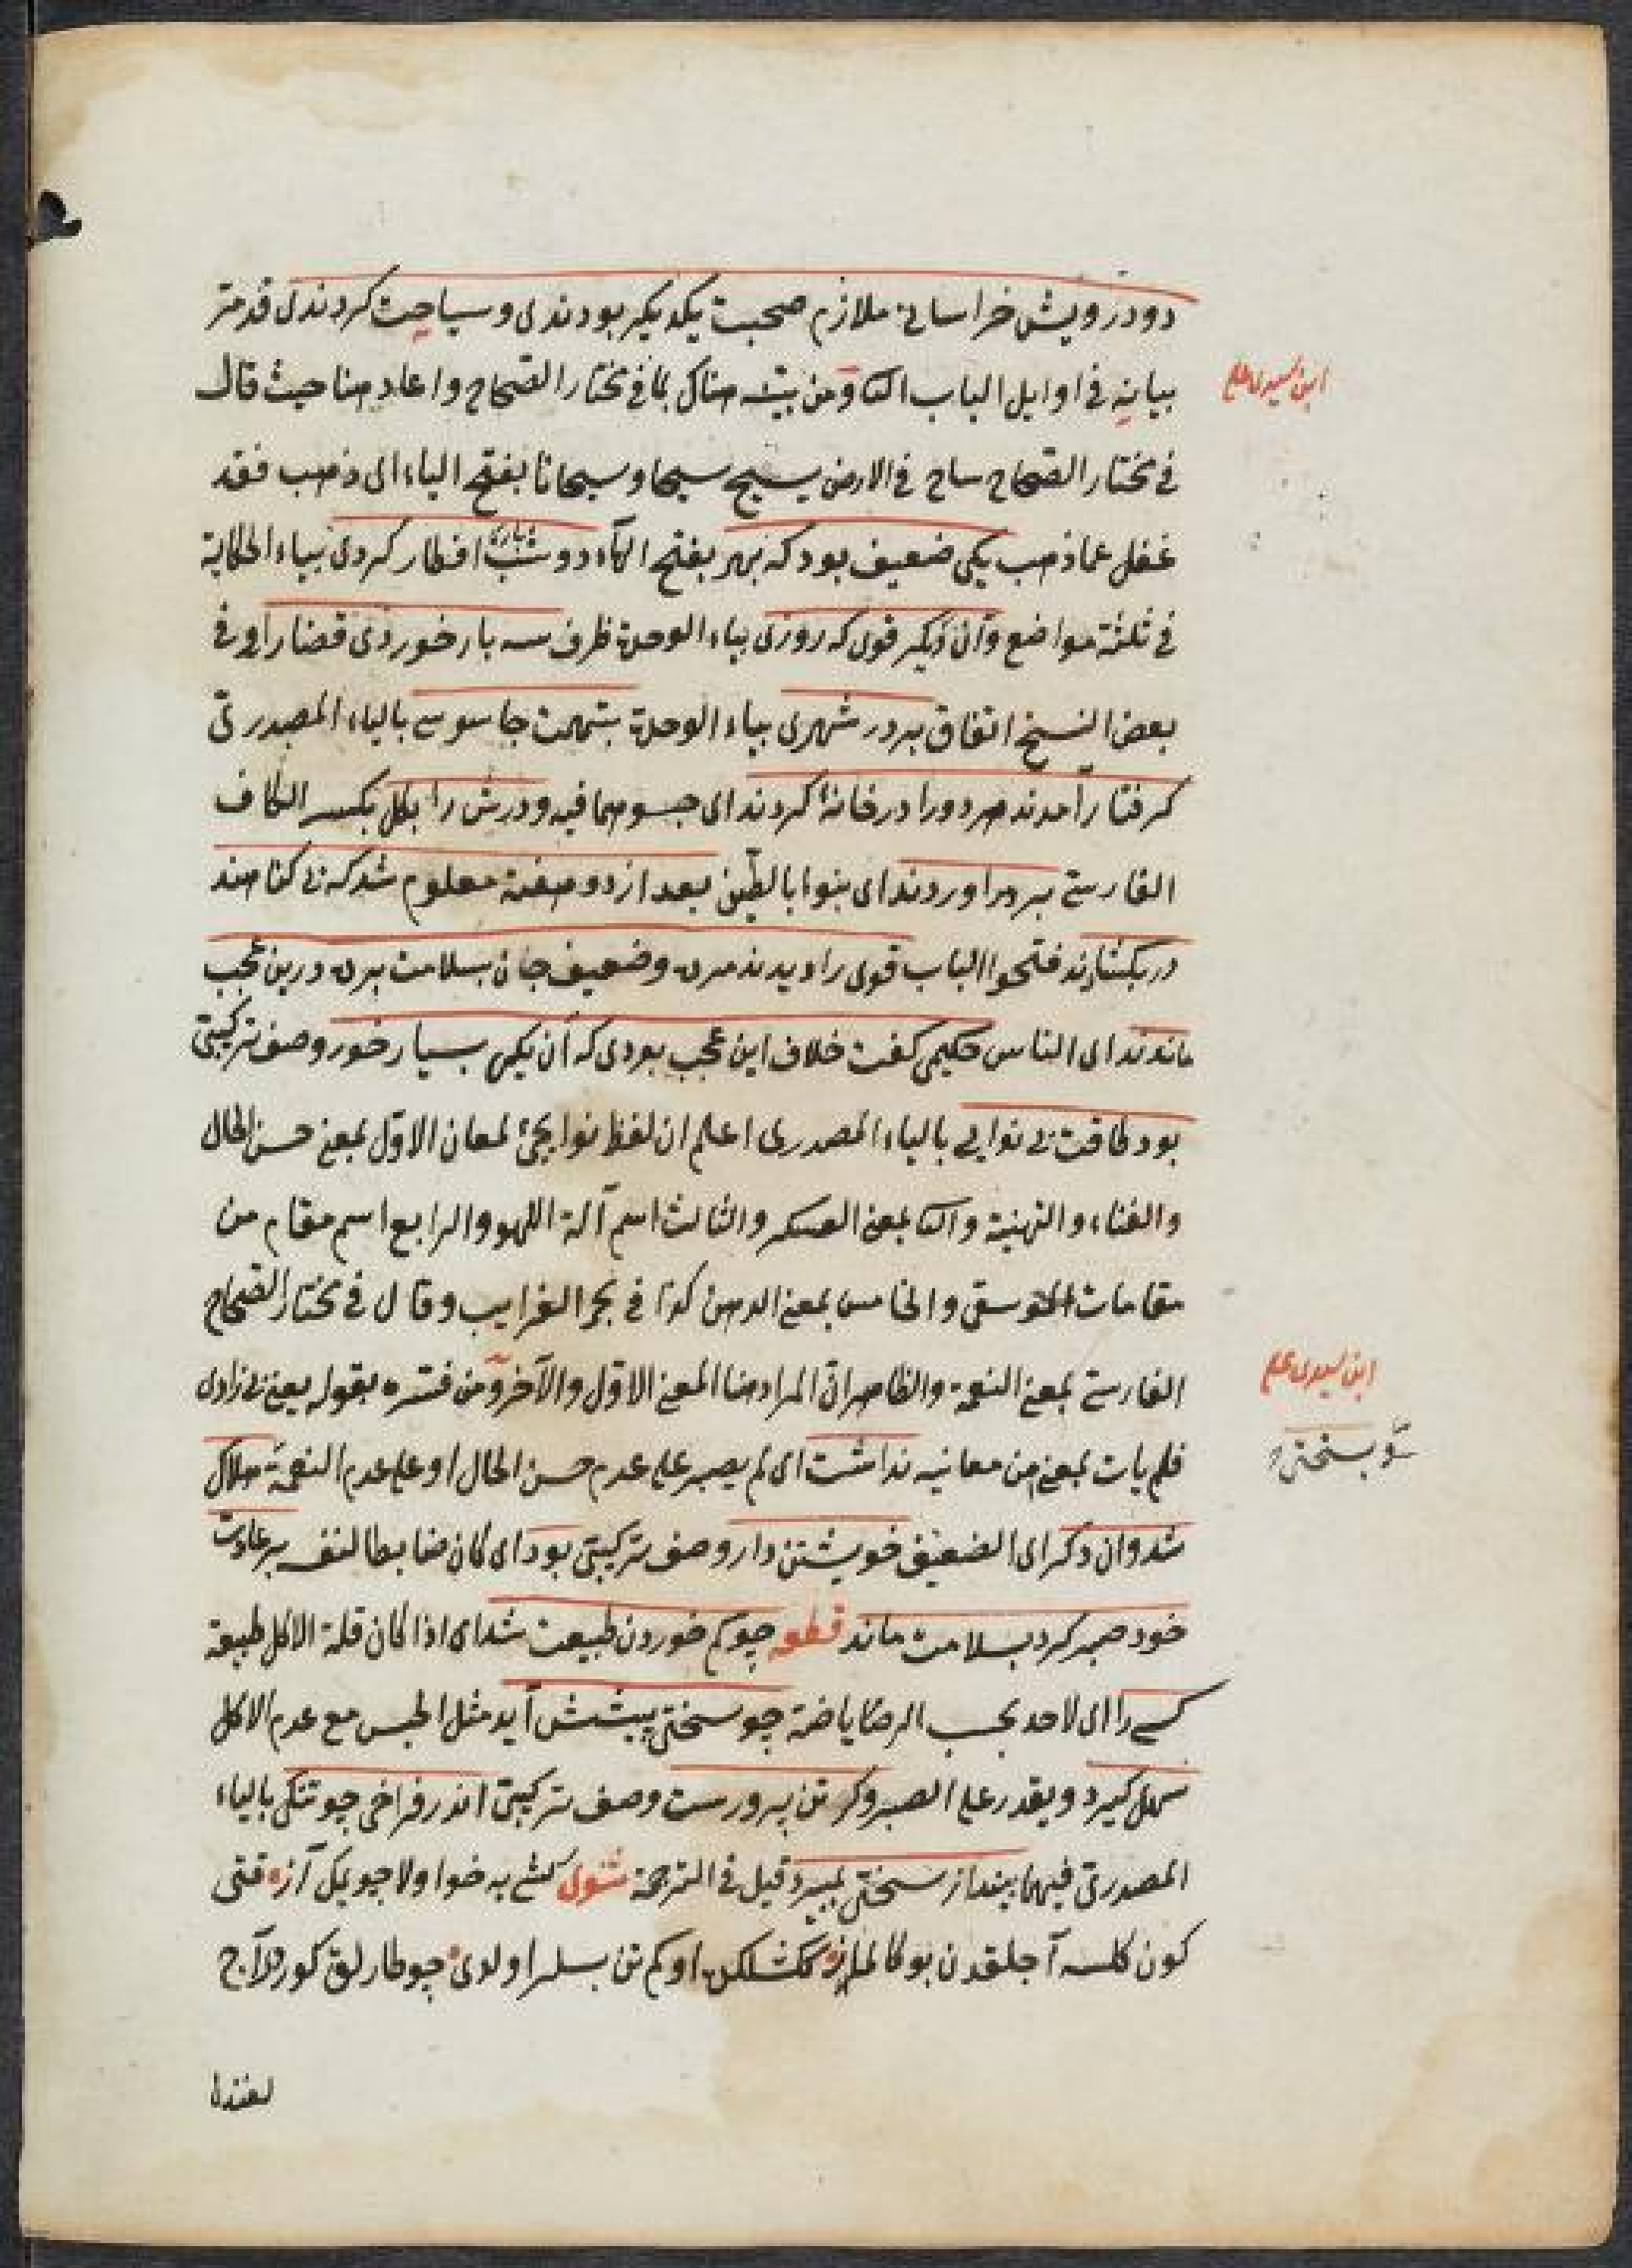 دو درويش خراسانى ملازم صحبت يكديكر بودندى وسياحت كردندى قد مر
بيانه فى اوايل الباب الثا ومن بينه هناك بما فى مختار الصحاح واعاده هنا حيث قال
ابن سيدى على
فى مختار الصحاح ساح فى الارض يسيح سيحا وسيحانا بفتح الياء اى ذهب فقد
غفل عما ذهب يكى ضعيف بود كه بهر بفتح الباء دو شب بارى افطار كردى بياء الحكاية
فى ثلثة مواضع وان ديكر قوى كه روزى بياء الوحدة ظرف سه بار خوردى قضارا وفى
بعض النسخ اتفاق بر در شهرى بياء الوحدة بتهمت جاسوسى بالياء المصدرى
كرفتار آمدند هر دورا در خانۀ كردند اى حبسوهما فيه ودرش را بكل بكسر الكاف
الفارسى بر مراوردند اى بنوا بالطين بعد از دو هفته معلوم شد كه بى كناهند
در بكشادند فتحوا الباب قوى را ديدند مرده وضعيف جان بسلامت برده درين عجب
ماندند اى الناس حكيمى كفت خلاف اين عجب بودى كه آن يكى بسيار خور وصف تركيبى
بود طاقت بى نوايى بالياء المصدرى اعلم ان لفظ نوا يجئ لمعان الاول بمعنى حسن الحال
والغناء والتهنية والثا بمعنى العسكر والثالث اسم آلة اللهو والرابع اسم مقام من
مقامات الموسقى والخامس بمعنى الدهن كذا فى بحر الغرايب وقال فى مختار الصحاح
الفارسى بمعنى النعمة والظاهر ان المراد هنا المعنى الاول والآخر ومن فسره بقوله يعنى بى زادى
ابن سيدى على
فلم يات بمعنى من معانيه نداشت اى لم يصبر على عدم حسن الحال او على عدم النعمة هلاك
و بسختى
شد وان دكر اى الضعيف خويشتن دار وصف تركيبى بود اى كان ضابطا لنفسه بر عادت
خود صبر كرد بسلامت ماند قطعه چو كم خوردن طبيعت شد اى اذا كان قلة الاكل طبيعة
كسى را اى لاحد بحسب الرضا ياضة چو سختى پيشش آيد مثل الحبس مع عدم الاكل
سهل كيرد ويقدر على الصبر وكر تن پرورست وصف تركيبى اندر فراخى چو تنكى بالياء
المصدرى فيهما بيند از سختى بميرد قيل فى الترجمة مثنوى كشى به خوا ولا جو يمك آزه قتى
كون كلسه آجلقدن بوكالماز ككشلكده اوكم تن بسلر اولدى چو طارلق كوره آج
لغندا